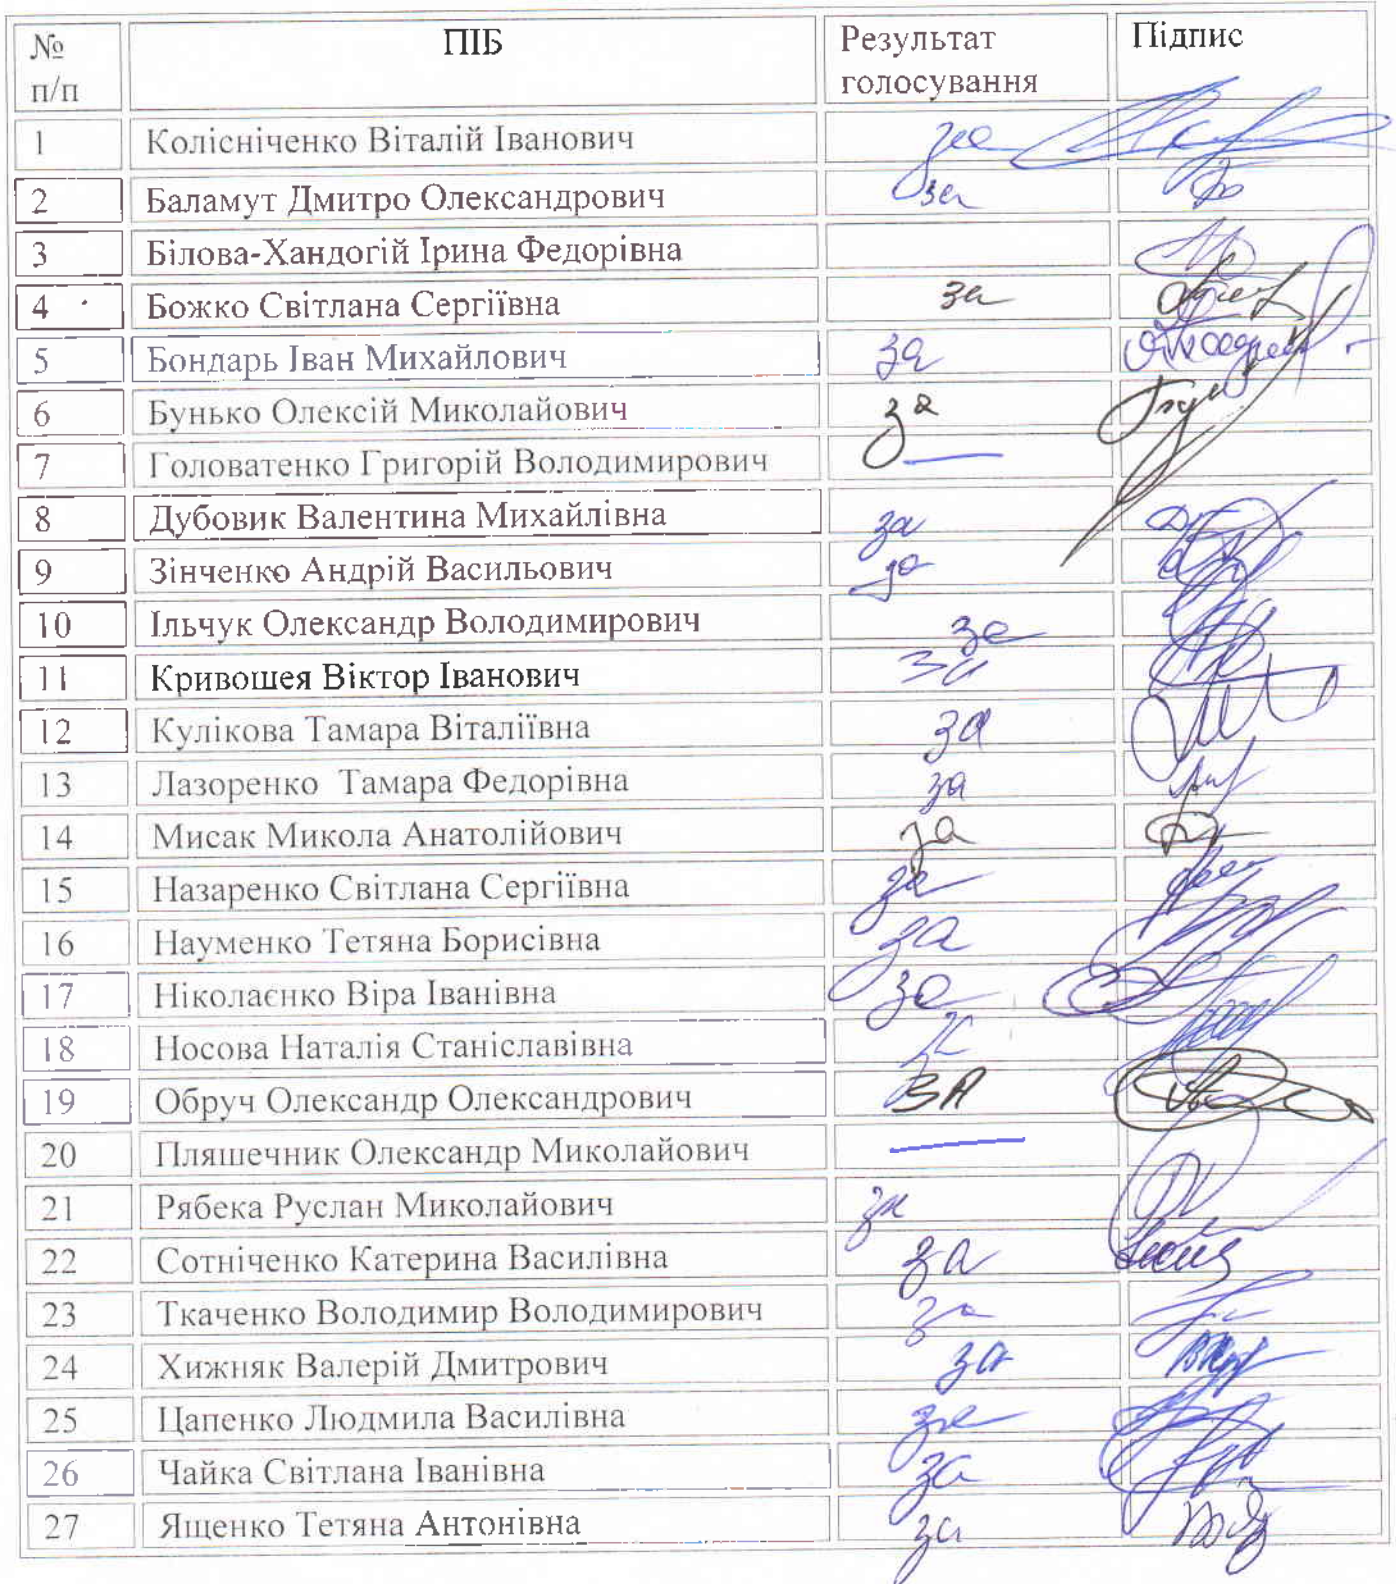 № п/п ПІБ Результат голосування Підпис
1 Колісніченко Віталій Іванович за
2 Баламут Дмитро Олександрович за
3 Білова-Хандогій Ірина Федорівна
4 Божко Світлана Сергіївна за
5 Бондарь Іван Михайлович за
6 Бунько Олексій Миколайович за
7 Головатенко Григорій Володимирович —
8 Дубовик Валентина Михайлівна за
9 Зінченко Андрій Васильович за
10 Ільчук Олександр Володимирович за
11 Кривошея Віктор Іванович за
12 Кулікова Тамара Віталіївна за
13 Лазоренко Тамара Федорівна за
14 Мисак Микола Анатолійович за
15 Назаренко Світлана Сергіївна за
16 Науменко Тетяна Борисівна за
17 Ніколаєнко Віра Іванівна за
18 Носова Наталія Станіславівна за
19 Обруч Олександр Олександрович ЗА
20 Пляшечник Олександр Миколайович —
21 Рябека Руслан Миколайович за
22 Сотніченко Катерина Василівна за
23 Ткаченко Володимир Володимирович за
24 Хижняк Валерій Дмитрович за
25 Цапенко Людмила Василівна за
26 Чайка Світлана Іванівна за
27 Ященко Тетяна Антонівна за